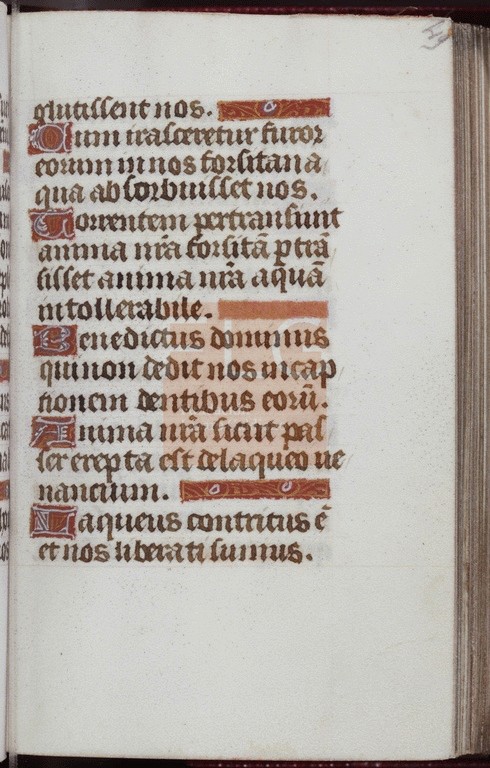 glutissent nos.
Cum irasceretur furor
eorum in nos forsitan a
qua absorbuisset nos.
Torrentem pertransiuit
anima nr̄a forsitā ꝑtrā
sisset anima nr̄a aquā
intollerabile.
Benedictus dominus
qui non dedit nos in cap
tionem dentibus eorū.
Anima nr̄a sicut pas
ser erepta est de laqueo ue
nancium.
Laqueus contritus ē
et nos liberati sumus.